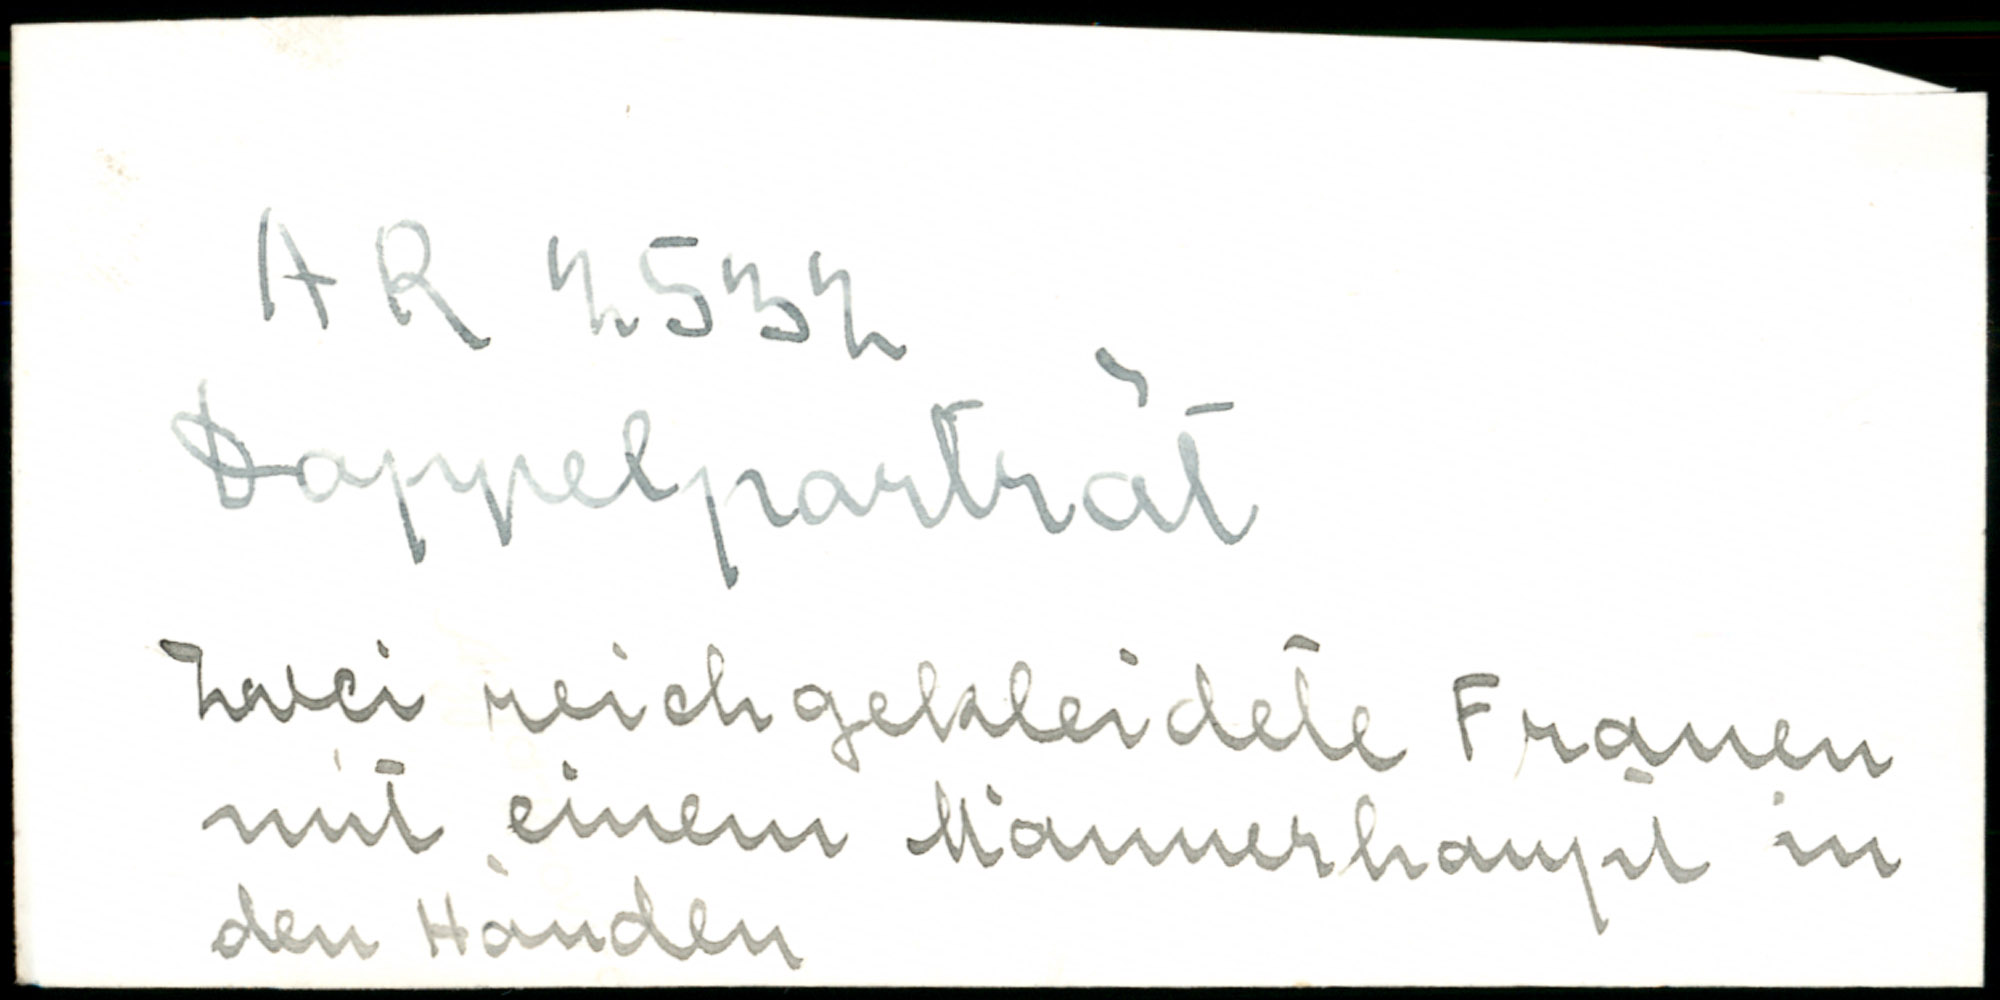 AR 2532
Doppelporträt
Zwei reichgekleidete Frauen
mit einem Männerhaupt in
den Händen